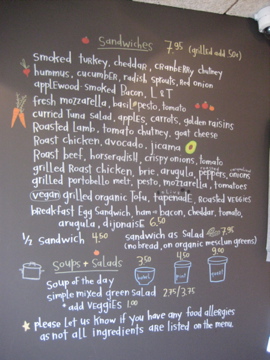 Sandwiches 7.95 (grilled add 50¢)
smoked turkey, cheddar, cranberry chutney
hummus, cucumber, radish sprouts, red onion
applewood-smoked Bacon, L & T
fresh mozzarella, basil pesto, tomato
curried Tuna salad, apples, carrots, golden raisins
Roasted lamb, tomato chutney, goat cheese
Roast chicken, avocado, jicama
Roast beef, horseradish, crispy onions, tomato
grilled Roast chicken, brie, arugula, peppers, onions
grilled portobello melt, pesto, mozzarella, tomatoes
vegan grilled organic Tofu, tapenade, Roasted veggies
breakfast Egg Sandwich, ham or bacon, cheddar, tomato,
arugula, dijonaise 6.50
1/2 sandwich 4.50 sandwich as Salad 7.95
(no bread, on organic mesclun greens)
Soups + Salads 3.50 4.50 9.00
bowl pint quart
soup of the day
simple mixed green salad 2.75/3.75
* add veggies 1.00
please let us know if you have any food allergies
as not all ingredients are listed on the menu.